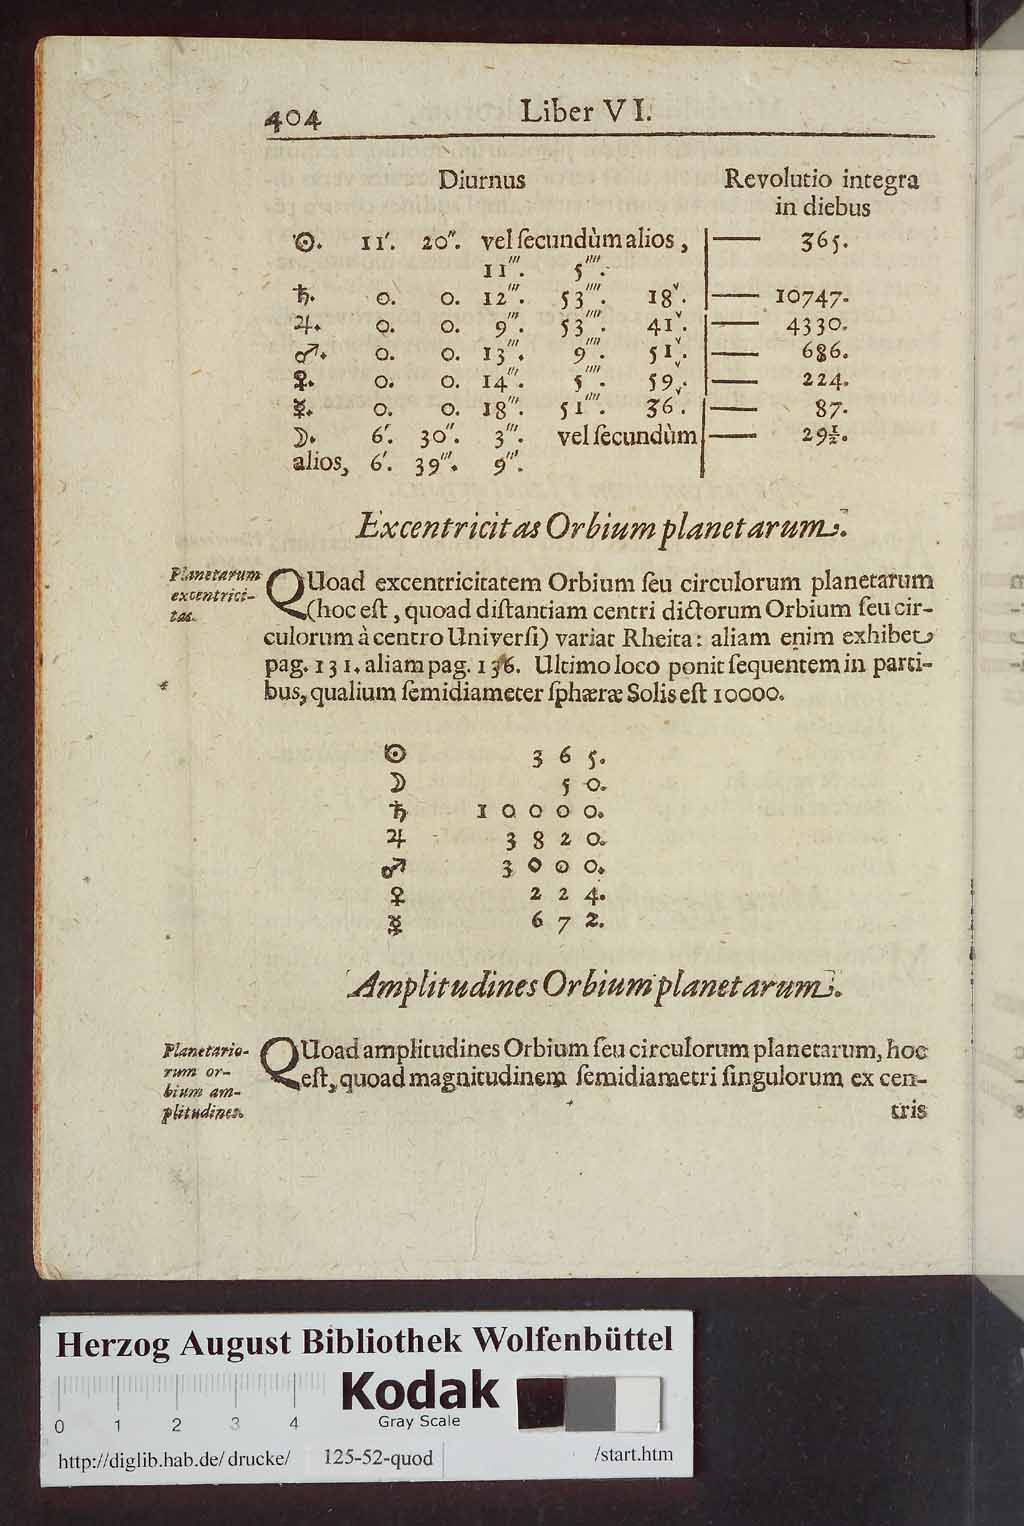 404 Liber VI.
Diurnus Revolutio integra
in diebus
☉. 11′. 20″. vel ſecundùm alios, — 365.
11‴. 5⁗.
♄. 0. 0. 12‴. 53⁗. 18ᵛ. — 10747.
♃. 0. 0. 9‴. 53⁗. 41ᵛ. — 4330.
♂. 0. 0. 13‴. 9⁗. 51ᵛ. — 686.
♀. 0. 0. 14‴. 5⁗. 59ᵛ. — 224.
☿. 0. 0. 18‴. 51⁗. 36ᵛ. — 87.
☽. 6′. 30″. 3‴. vel ſecundùm — 29½.
alios, 6′. 39‴. 9‴.
Excentricitas Orbium planetarum.
Planetarum
excentrici-
tas.
QUoad excentricitatem Orbium ſeu circulorum planetarum
(hoc eſt, quoad diſtantiam centri dictorum Orbium ſeu cir-
culorum à centro Univerſi) variat Rheita: aliam enim exhibet
pag. 131. aliam pag. 136. Ultimo loco ponit ſequentem in parti-
bus, qualium ſemidiameter ſphæræ Solis eſt 10000.
☉ 365.
☽ 50.
♄ 10000.
♃ 3820.
♂ 3000.
♀ 224.
☿ 672.
Amplitudines Orbium planetarum.
Planetario-
rum or-
bium am-
plitudines.
QUoad amplitudines Orbium ſeu circulorum planetarum, hoc
eſt, quoad magnitudinem ſemidiametri ſingulorum ex cen-
tris
Herzog August Bibliothek Wolfenbüttel
Kodak
Gray Scale
0 1 2 3 4
http://diglib.hab.de/drucke/ 125-52-quod /start.htm